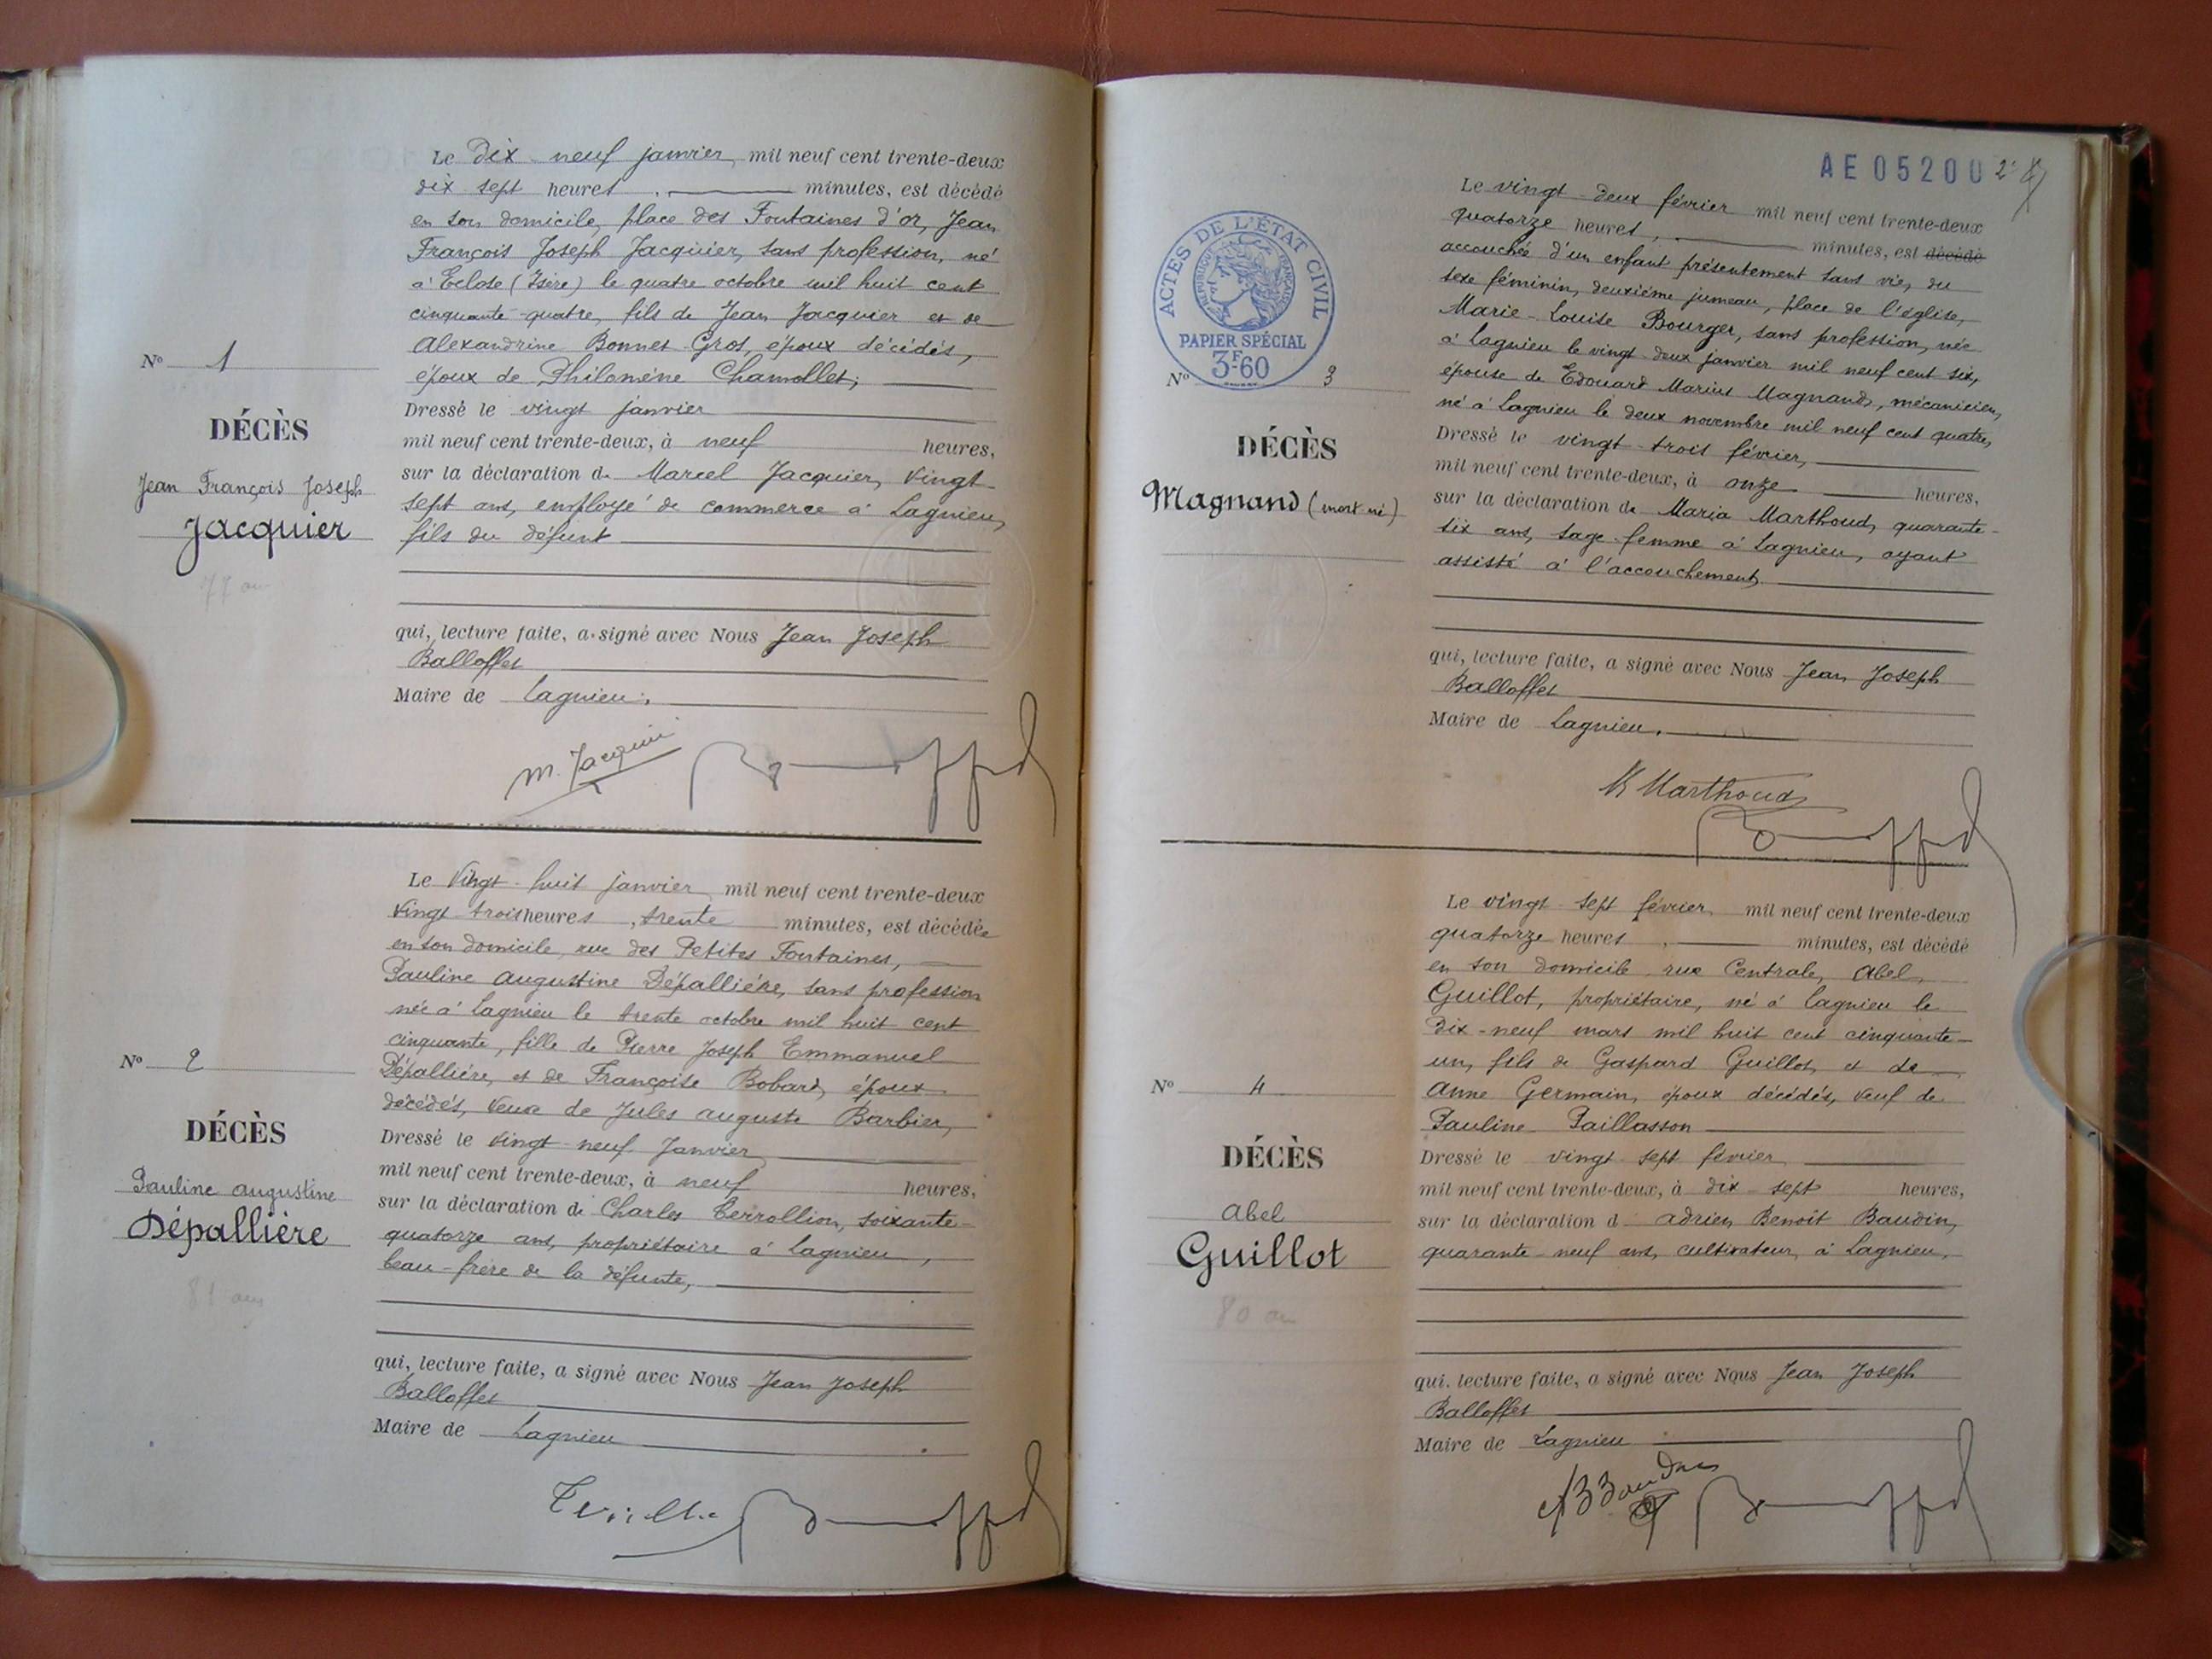 Le Dix-neuf janvier, mil neuf cent trente-deux
dix sept heures, minutes, est décédé
en son domicile, place des Fontaines d'or, Jean
François Joseph Jacquier, sans profession, né
à Eclose (Isère) le quatre octobre mil huit cent
cinquante-quatre, fils de Jean Jacquier et de
Alexandrine Bonnet-Gros, époux décédés,
époux de Philomène Chamollet;
Dressé le vingt janvier
mil neuf cent trente-deux, à neuf heures,
sur la déclaration de Marcel Jacquier, vingt-
sept ans, employé de commerce à Lagnieu,
fils du défunt
qui, lecture faite, a signé avec Nous Jean Joseph
Balloffet
Maire de Lagnieu.
M. Jacquier
N° 1
DÉCÈS
Jean François Joseph
Jacquier
77 ans
Le Vingt-huit janvier mil neuf cent trente-deux
Vingt-trois heures, trente minutes, est décédée
en son domicile, rue des Petites Fontaines,
Pauline Augustine Dépallière, sans profession
née à Lagnieu le trente octobre mil huit cent
cinquante, fille de Pierre Joseph Emmanuel
Dépallière, et de Françoise Bobard, époux
décédés, veuve de Jules Auguste Barbier,
Dressé le vingt-neuf Janvier
mil neuf cent trente-deux, à neuf heures,
sur la déclaration de Charles Terrollion, soixante-
quatorze ans, propriétaire à Lagnieu,
beau-frère de la défunte,
qui, lecture faite, a signé avec Nous Jean Joseph
Balloffet
Maire de Lagnieu
N° 2
DÉCÈS
Pauline Augustine
Dépallière
81 ans
AE 05200 2
ACTES DE L'ÉTAT CIVIL
RÉPUBLIQUE FRANÇAISE
PAPIER SPÉCIAL
3F60
Le vingt-deux février mil neuf cent trente-deux
quatorze heures, minutes, est décédé
accouchée d'un enfant présentement sans vie, du
sexe féminin, deuxième jumeau, place de l'église,
Marie-Louise Bourger, sans profession, née
à Lagnieu le vingt-deux janvier mil neuf cent six,
épouse de Edouard Marius Magnand, mécanicien,
né à Lagnieu le deux novembre mil neuf cent quatre,
Dressé le vingt-trois février,
mil neuf cent trente-deux, à onze heures,
sur la déclaration de Maria Marthoud, quarante-
six ans, sage-femme à Lagnieu, ayant
assisté à l'accouchement
qui, lecture faite, a signé avec Nous Jean Joseph
Balloffet
Maire de Lagnieu.
M Marthoud
N° 3
DÉCÈS
Magnand (mort né)
Le vingt-sept février mil neuf cent trente-deux
quatorze heures, minutes, est décédé
en son domicile rue Centrale, Abel
Guillot, propriétaire, né à Lagnieu le
Dix-neuf mars mil huit cent cinquante-
un, fils de Gaspard Guillot, et de
Anne Germain, époux décédés, veuf de
Pauline Paillasson
Dressé le vingt sept février
mil neuf cent trente-deux, à dix-sept heures,
sur la déclaration d Adrien Benoît Baudin,
quarante-neuf ans, cultivateur, à Lagnieu,
qui, lecture faite, a signé avec Nous Jean Joseph
Balloffet
Maire de Lagnieu
N° 4
DÉCÈS
Abel
Guillot
80 an